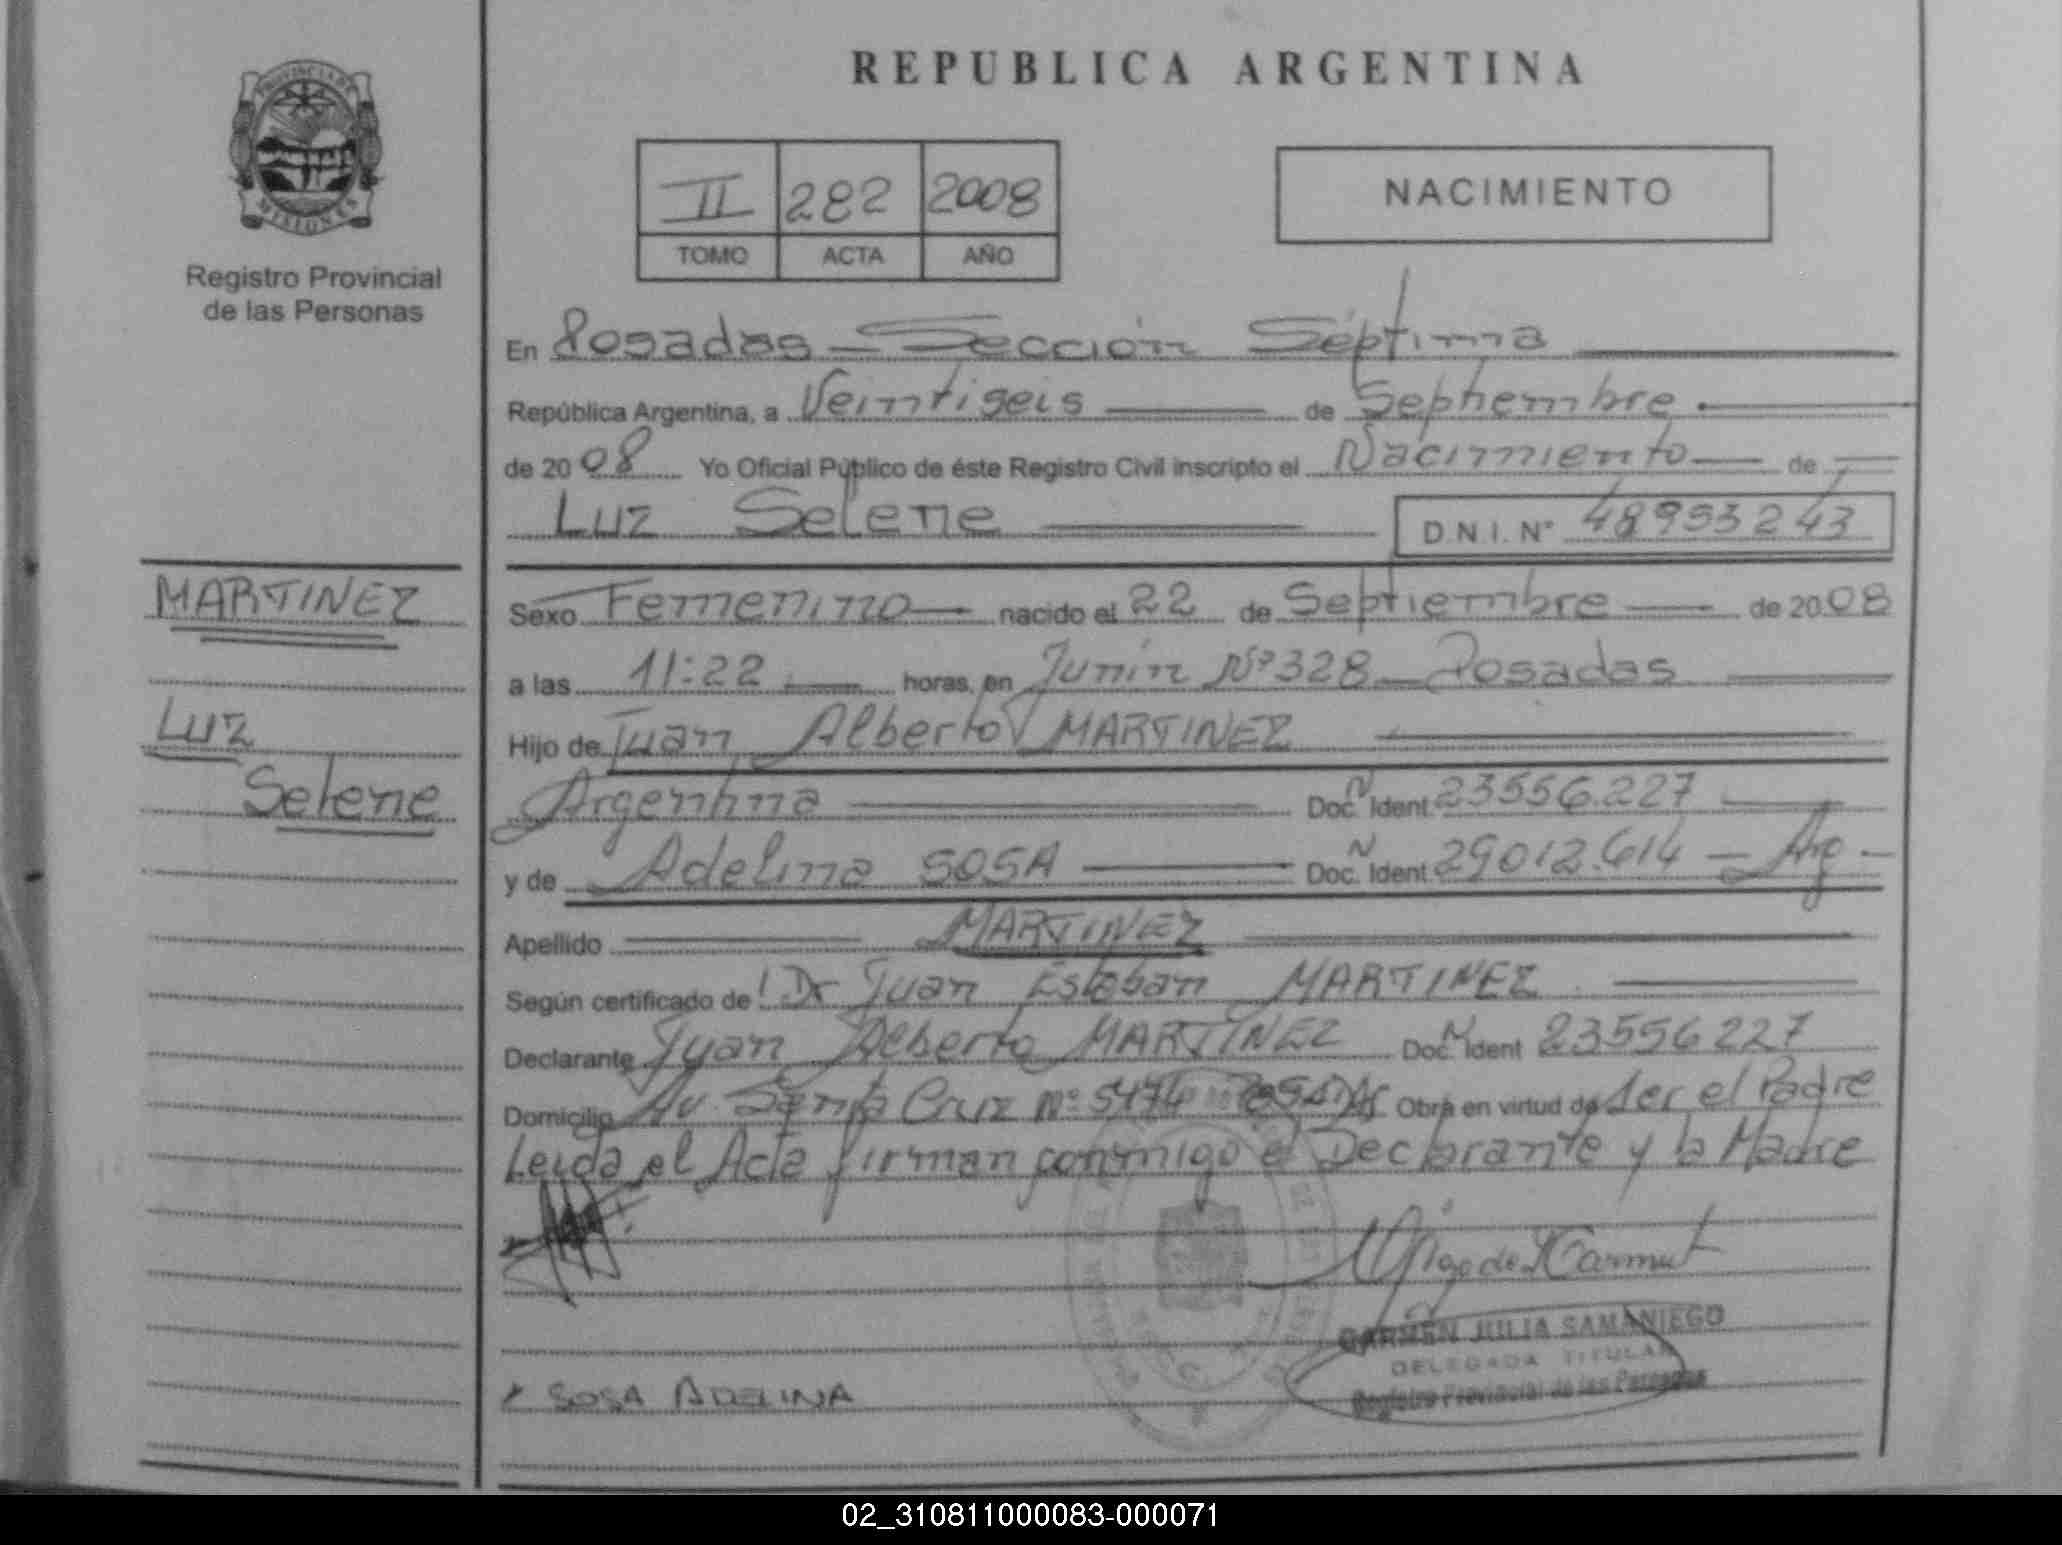 REPUBLICA ARGENTINA
PROVINCIA DE
MISIONES
Registro Provincial
de las Personas
II 282 2008
TOMO ACTA AÑO
NACIMIENTO
En Posadas — Sección Séptima
República Argentina, a Veintiseis de Septiembre
de 2008 Yo Oficial Público de éste Registro Civil inscripto el Nacimiento de
Luz Selene D.N.I. N° 48953243
MARTINEZ
Luz
Selene
Sexo Femenino nacido el 22 de Septiembre de 2008
a las 11:22 horas, en Junín Nº 328 — Posadas
Hijo de Juan Alberto MARTINEZ
Argentina Doc. N Ident 23556.227
y de Adelina SOSA Doc. N Ident 29012.614 — Arg.
Apellido MARTINEZ
Según certificado de: Dr Juan Esteban MARTINEZ
Declarante Juan Alberto MARTINEZ Doc. N Ident 23556227
Domicilio Av. Santa Cruz Nº 5474 Posadas Obra en virtud de Ser el Padre
Leida el Acta firman conmigo el Declarante y la Madre
CARMEN JULIA SAMANIEGO
DELEGADA TITULAR
Registro Provincial de las Personas
SOSA ADELINA
02_310811000083-000071